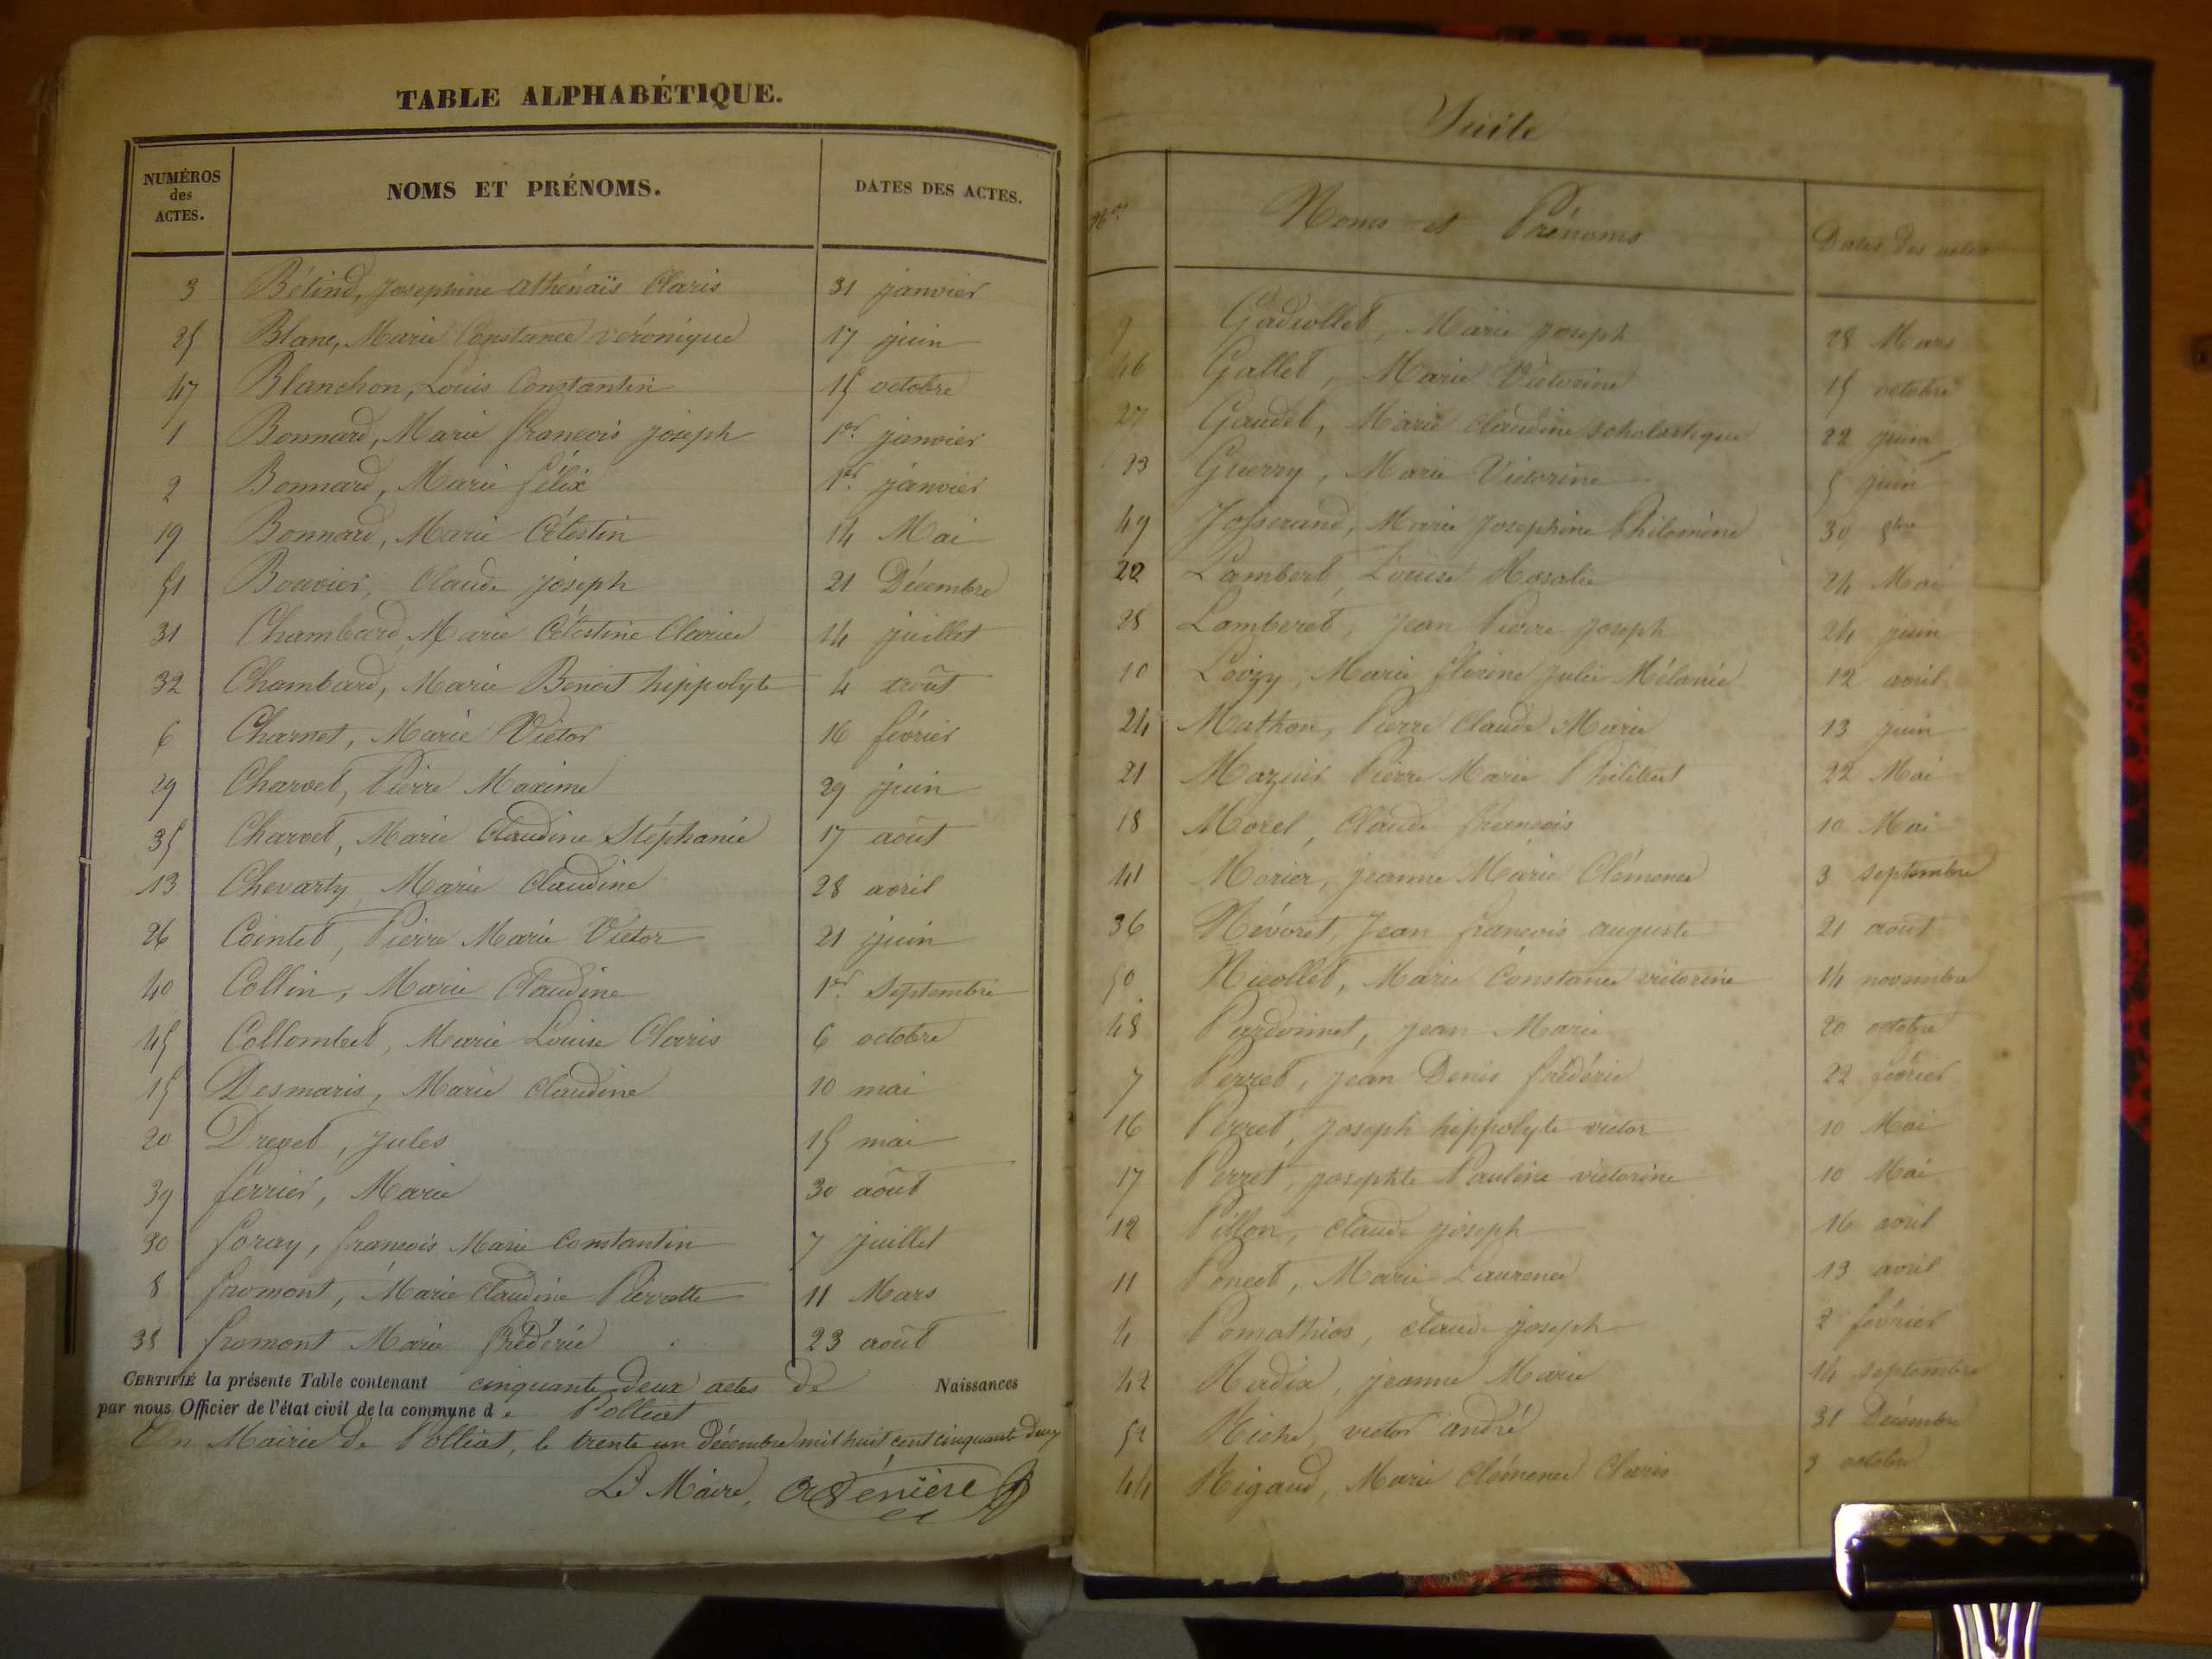 TABLE ALPHABÉTIQUE.
NUMÉROS des ACTES. NOMS ET PRÉNOMS. DATES DES ACTES.
3 Bélind, Josephine athénaïs Claris 31 janvier
25 Blanc, Marie Constance véronique 17 juin
47 Blanchon, Louis Constantin 15 octobre
1 Bonnard, Marie françois joseph 1er janvier
2 Bonnard, Marie félix 1er janvier
19 Bonnard, Marie Célestin 14 Mai
51 Bouvier, Claude joseph 21 Décembre
31 Chambard, Marie Célestine Clarice 14 juillet
32 Chambard, Marie Benoit hippolyte 4 août
6 Charnet, Marie Victor 16 février
29 Charvet, Pierre Maxime 29 juin
35 Charvet, Marie Claudine Stéphanie 17 août
13 Chevarty, Marie Claudine 28 avril
26 Cointet, Pierre Marie Victor 21 juin
40 Collin, Marie Claudine 1er Septembre
45 Collombet, Marie Louise Claris 6 octobre
15 Desmaris, Marie Claudine 10 mai
20 Drevet, Jules 15 mai
39 ferrier, Marie 30 août
30 foray, françois Marie Constantin 7 juillet
8 fromont, Marie Claudine Pierrette 11 Mars
38 fromont Marie frédéric 23 août
CERTIFIÉ la présente Table contenant cinquante deux actes de Naissances
par nous Officier de l'état civil de la commune de Polliat
En Mairie de Polliat, le trente un Décembre mil huit cent cinquante deux
Le Maire,
Suite
Nos Noms et Prénoms Dates des actes
9 Gadiollet, Marie joseph 28 Mars
46 Gallet, Marie Victorine 15 octobre
27 Gaudet, Marie Claudine scholastique 22 juin
23 Guerry, Marie Victorine 5 juin
49 Josserand, Marie Josephine Philomène 30 8bre
22 Lambert, Louise Rosalie 24 Mai
28 Lamberet, Jean Pierre joseph 24 juin
10 Loizy, Marie florine julie Mélanie 12 avril
24 Mathon, Pierre Claude Marie 13 juin
21 Mazuir Pierre Marie Philibert 22 Mai
18 Morel, Claude françois 10 Mai
41 Morier, jeanne Marie Clémence 3 septembre
36 Névoret, Jean françois auguste 21 août
50 Nicollet, Marie Constance victorine 14 novembre
48 Pardonnet, jean Marie 20 octobre
7 Perret, jean Denis frédéric 22 février
16 Perret, joseph hippolyte victor 10 Mai
17 Perret, josephte Pauline victorine 10 Mai
12 Pillon, claude joseph 16 avril
11 Poncet, Marie Laurence 13 avril
4 Pomathios, claude joseph 2 février
42 Radix, jeanne Marie 14 septembre
52 Riche, victor andré 31 Décembre
44 Rigaud, Marie Clémence Claris 3 octobre